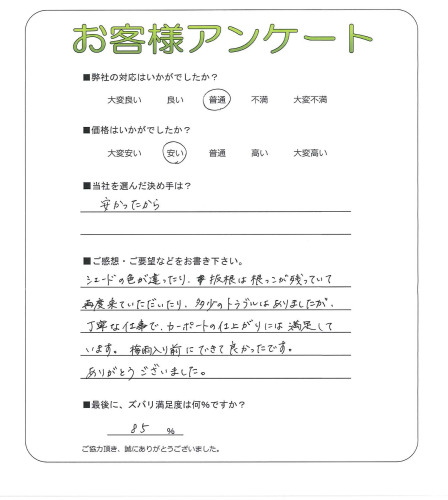 お客様アンケート
■弊社の対応はいかがでしたか？
大変良い 良い 普通 不満 大変不満
■価格はいかがでしたか？
大変安い 安い 普通 高い 大変高い
■当社を選んだ決め手は？
安かったから
■ご感想・ご要望などをお書き下さい。
シェードの色が違ったり、坂根は根っこが残っていて
再度来ていただいたり、多少のトラブルはありましたが、
丁寧な仕事で、カーポートの仕上がりには満足して
います。梅雨入り前にできて良かったです。
ありがとうございました。
■最後に、ズバリ満足度は何％ですか？
85 %
ご協力頂き、誠にありがとうございました。